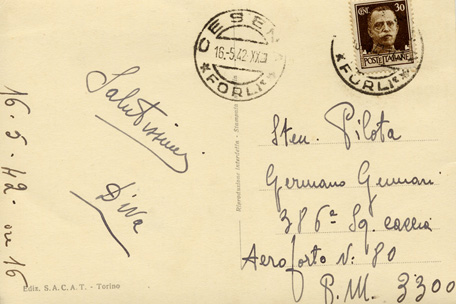 CESENA
16-5.42-XX
*FORLI*
CENT. 30
POSTE ITALIANE
*FORLI*
16 . 5 . 42 - ore 16
Salutissimi
Diva
Sten. Pilota
Germano Gennari
386ª Sq. caccia
Aeroporto N: 80
P. M. 3300
Riproduzione interdetta -
Ediz. S. A. C. A. T. - Torino